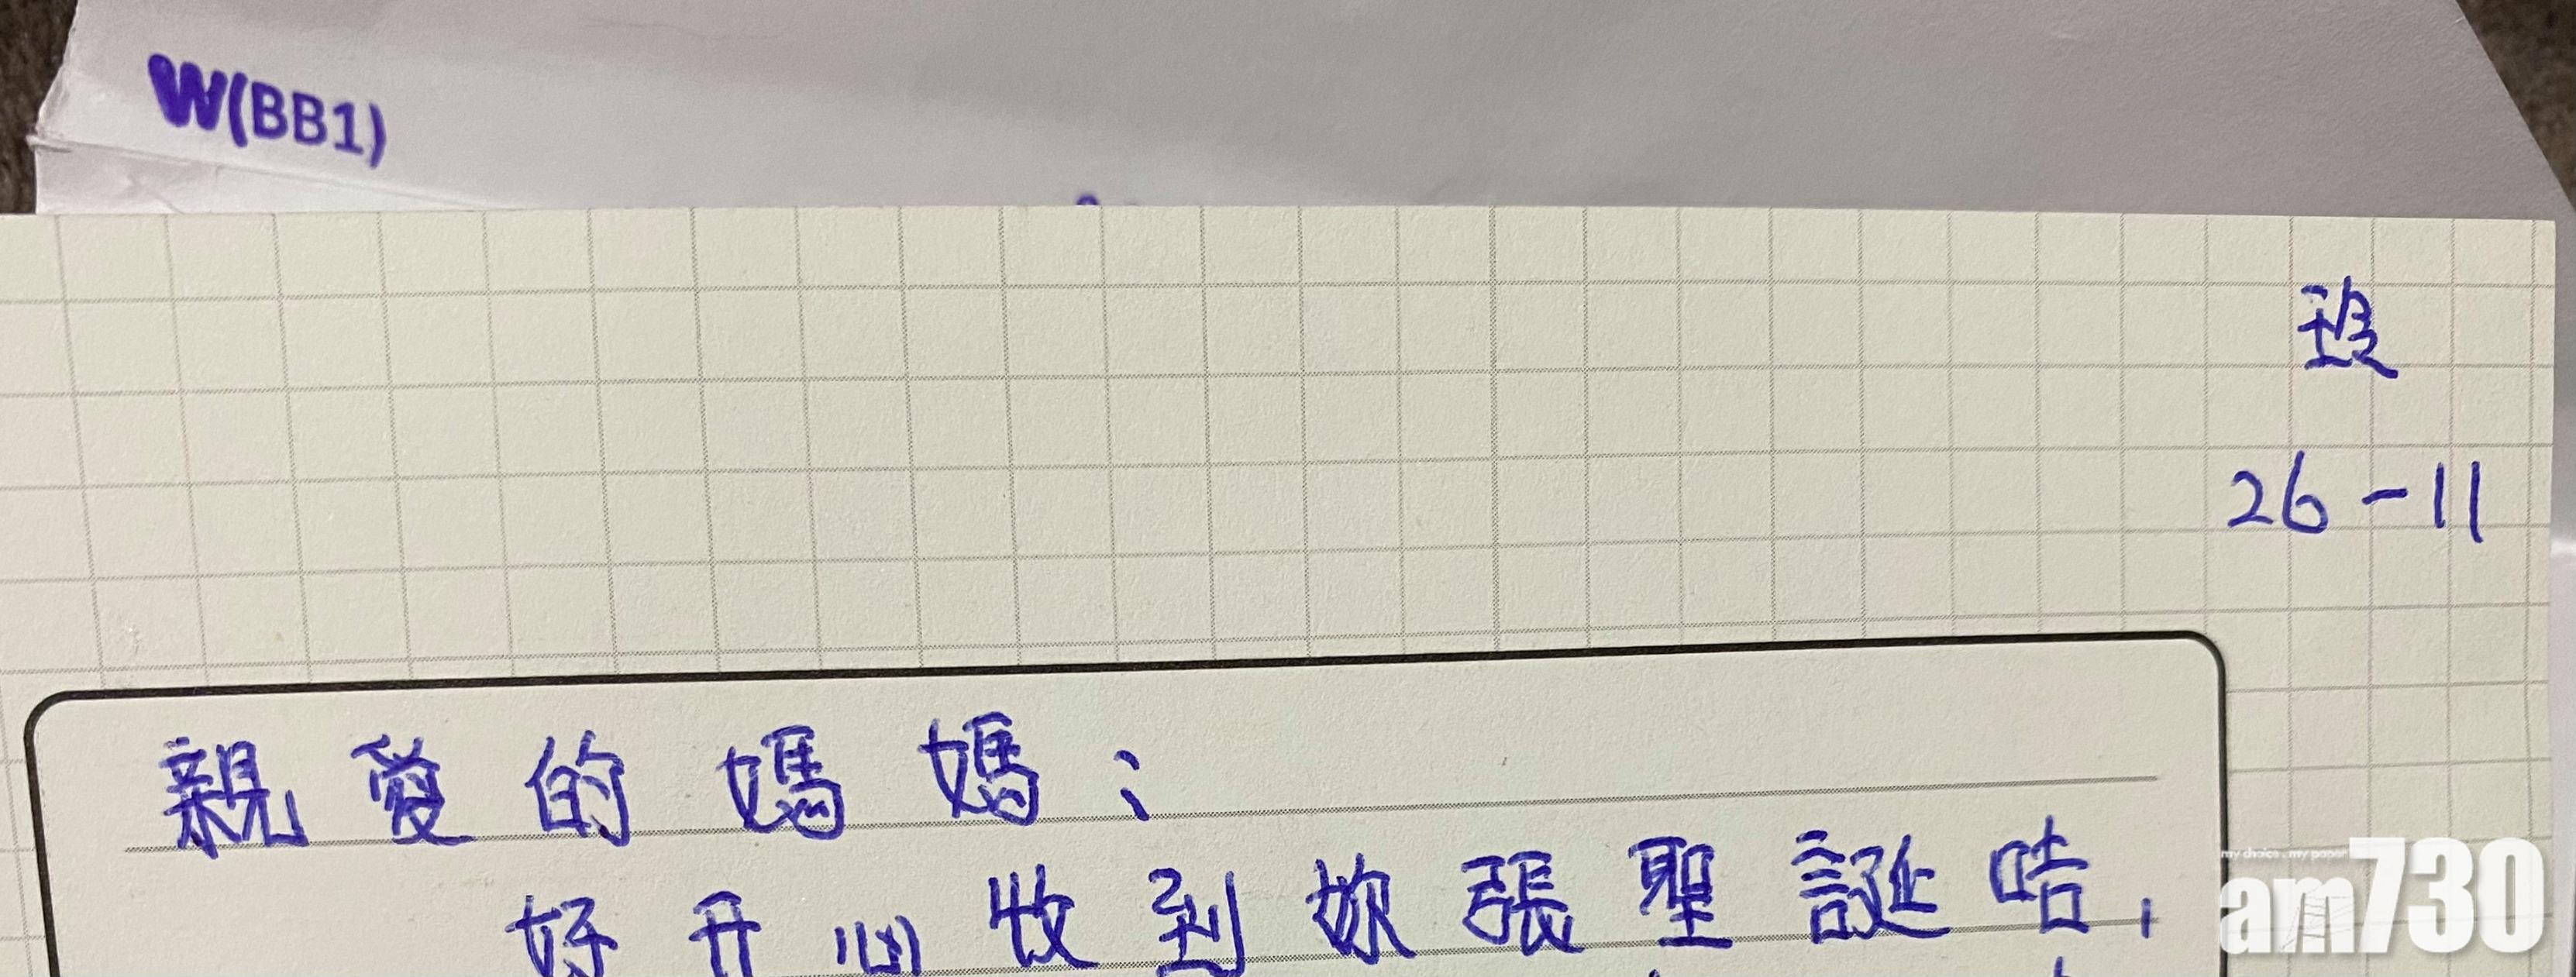 W(BB1)
26-11
親愛的媽媽：
好開心收到妳張聖誕咭，
my choice . my paper
am730